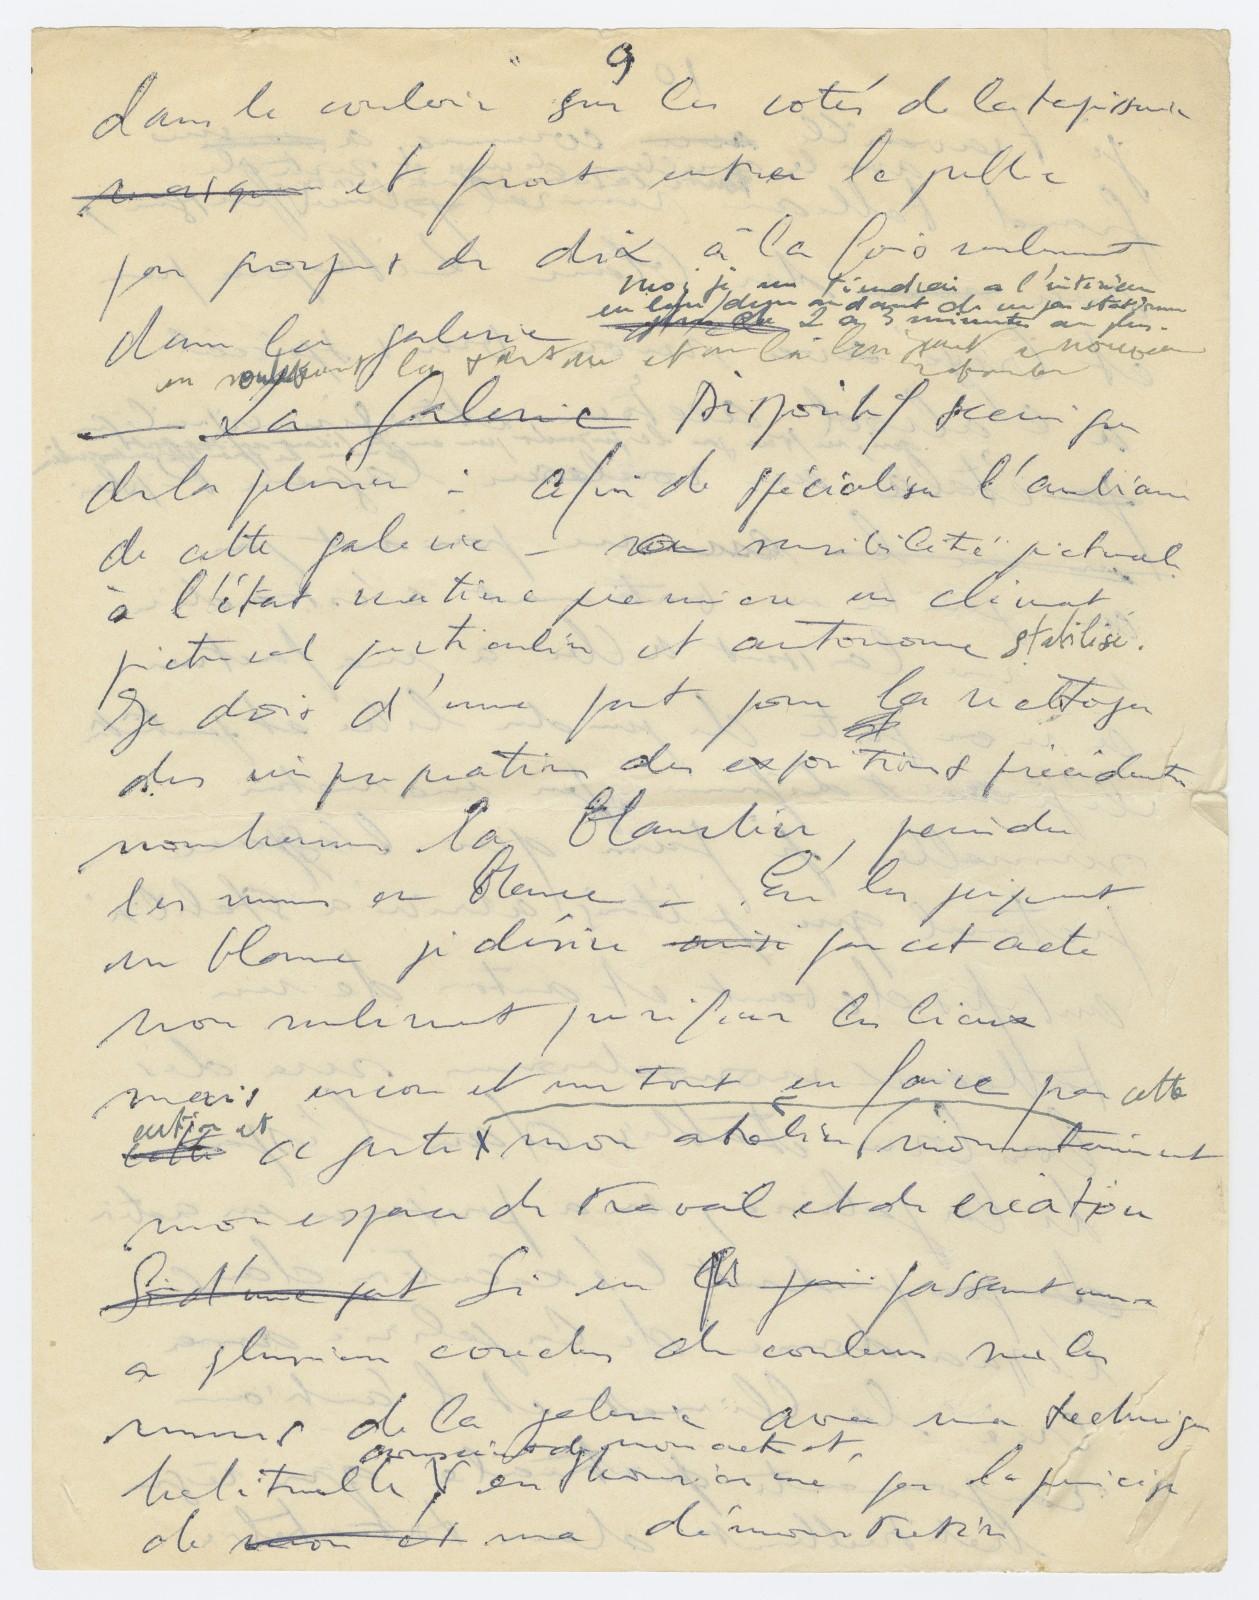 9
dans le couloir sur les cotés de la tapisserie
et feront entrer le public
par groupes de dix à la fois seulement
moi je me tiendrai a l'interieur
en leur demandant de ne pas stationner
plus de 2 a 3 minutes au plus.
dans la galerie
en soulevant la tenture et en la laissant a nouveau
retomber
La Galerie Dispositif scenique
de la pleniere : afin de spécialiser l'ambiance
de cette galerie – sa sensibilité picturale
à l'état matière première en climat
pictural particulier et autonome stabilisé.
Je dois d'une part pour la nettoyer
des impregnations des expositions précédentes
nombreuses la blanchir, peindre
les murs en blanc – En les peignant
en blanc je désire ainsi par cet acte
non seulement purifier les lieux
mais encore et surtout en faire par cette
action et
cette ce geste mon atelier (momentanément
mon espace de travail et de création
Si d'une part Si en passant une
a plusieurs couches de couleur sur les
murs de la galerie avec ma technique
conscient de mon acte et
habituelle en par le principe
de mon et ma démonstration